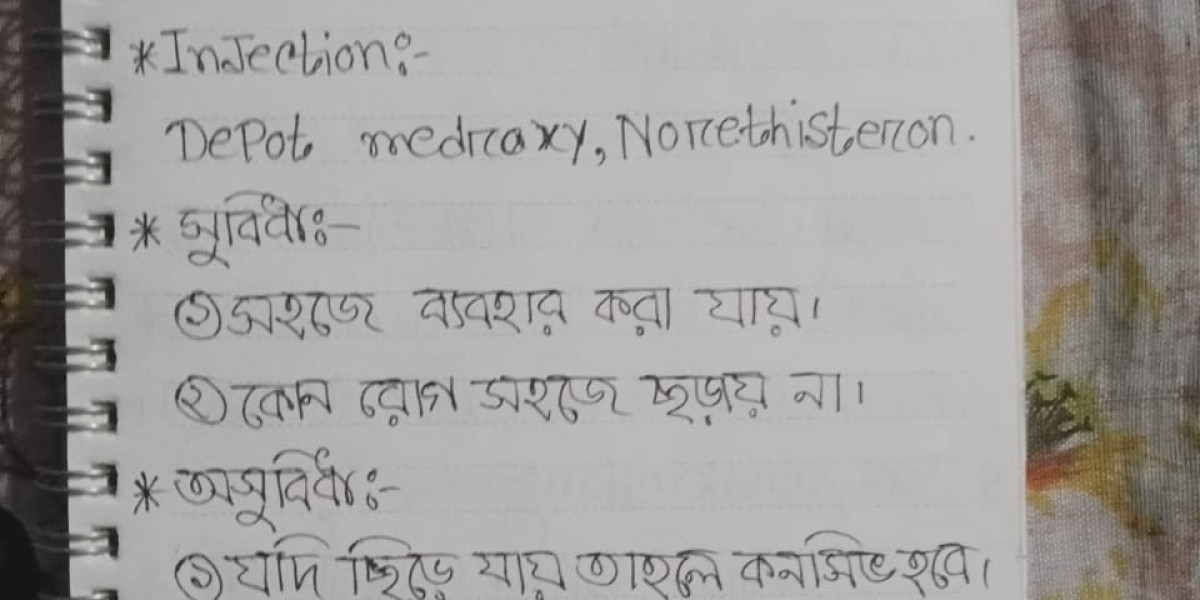 * Injection:-
Depot medroxy, Norethisteron.
* সুবিধা:-
① সহজে ব্যবহার করা যায়।
② কোন রোগ সহজে ছড়ায় না।
* অসুবিধা:-
① যদি ছিড়ে যায় তাহলে কনসিভ হবে।